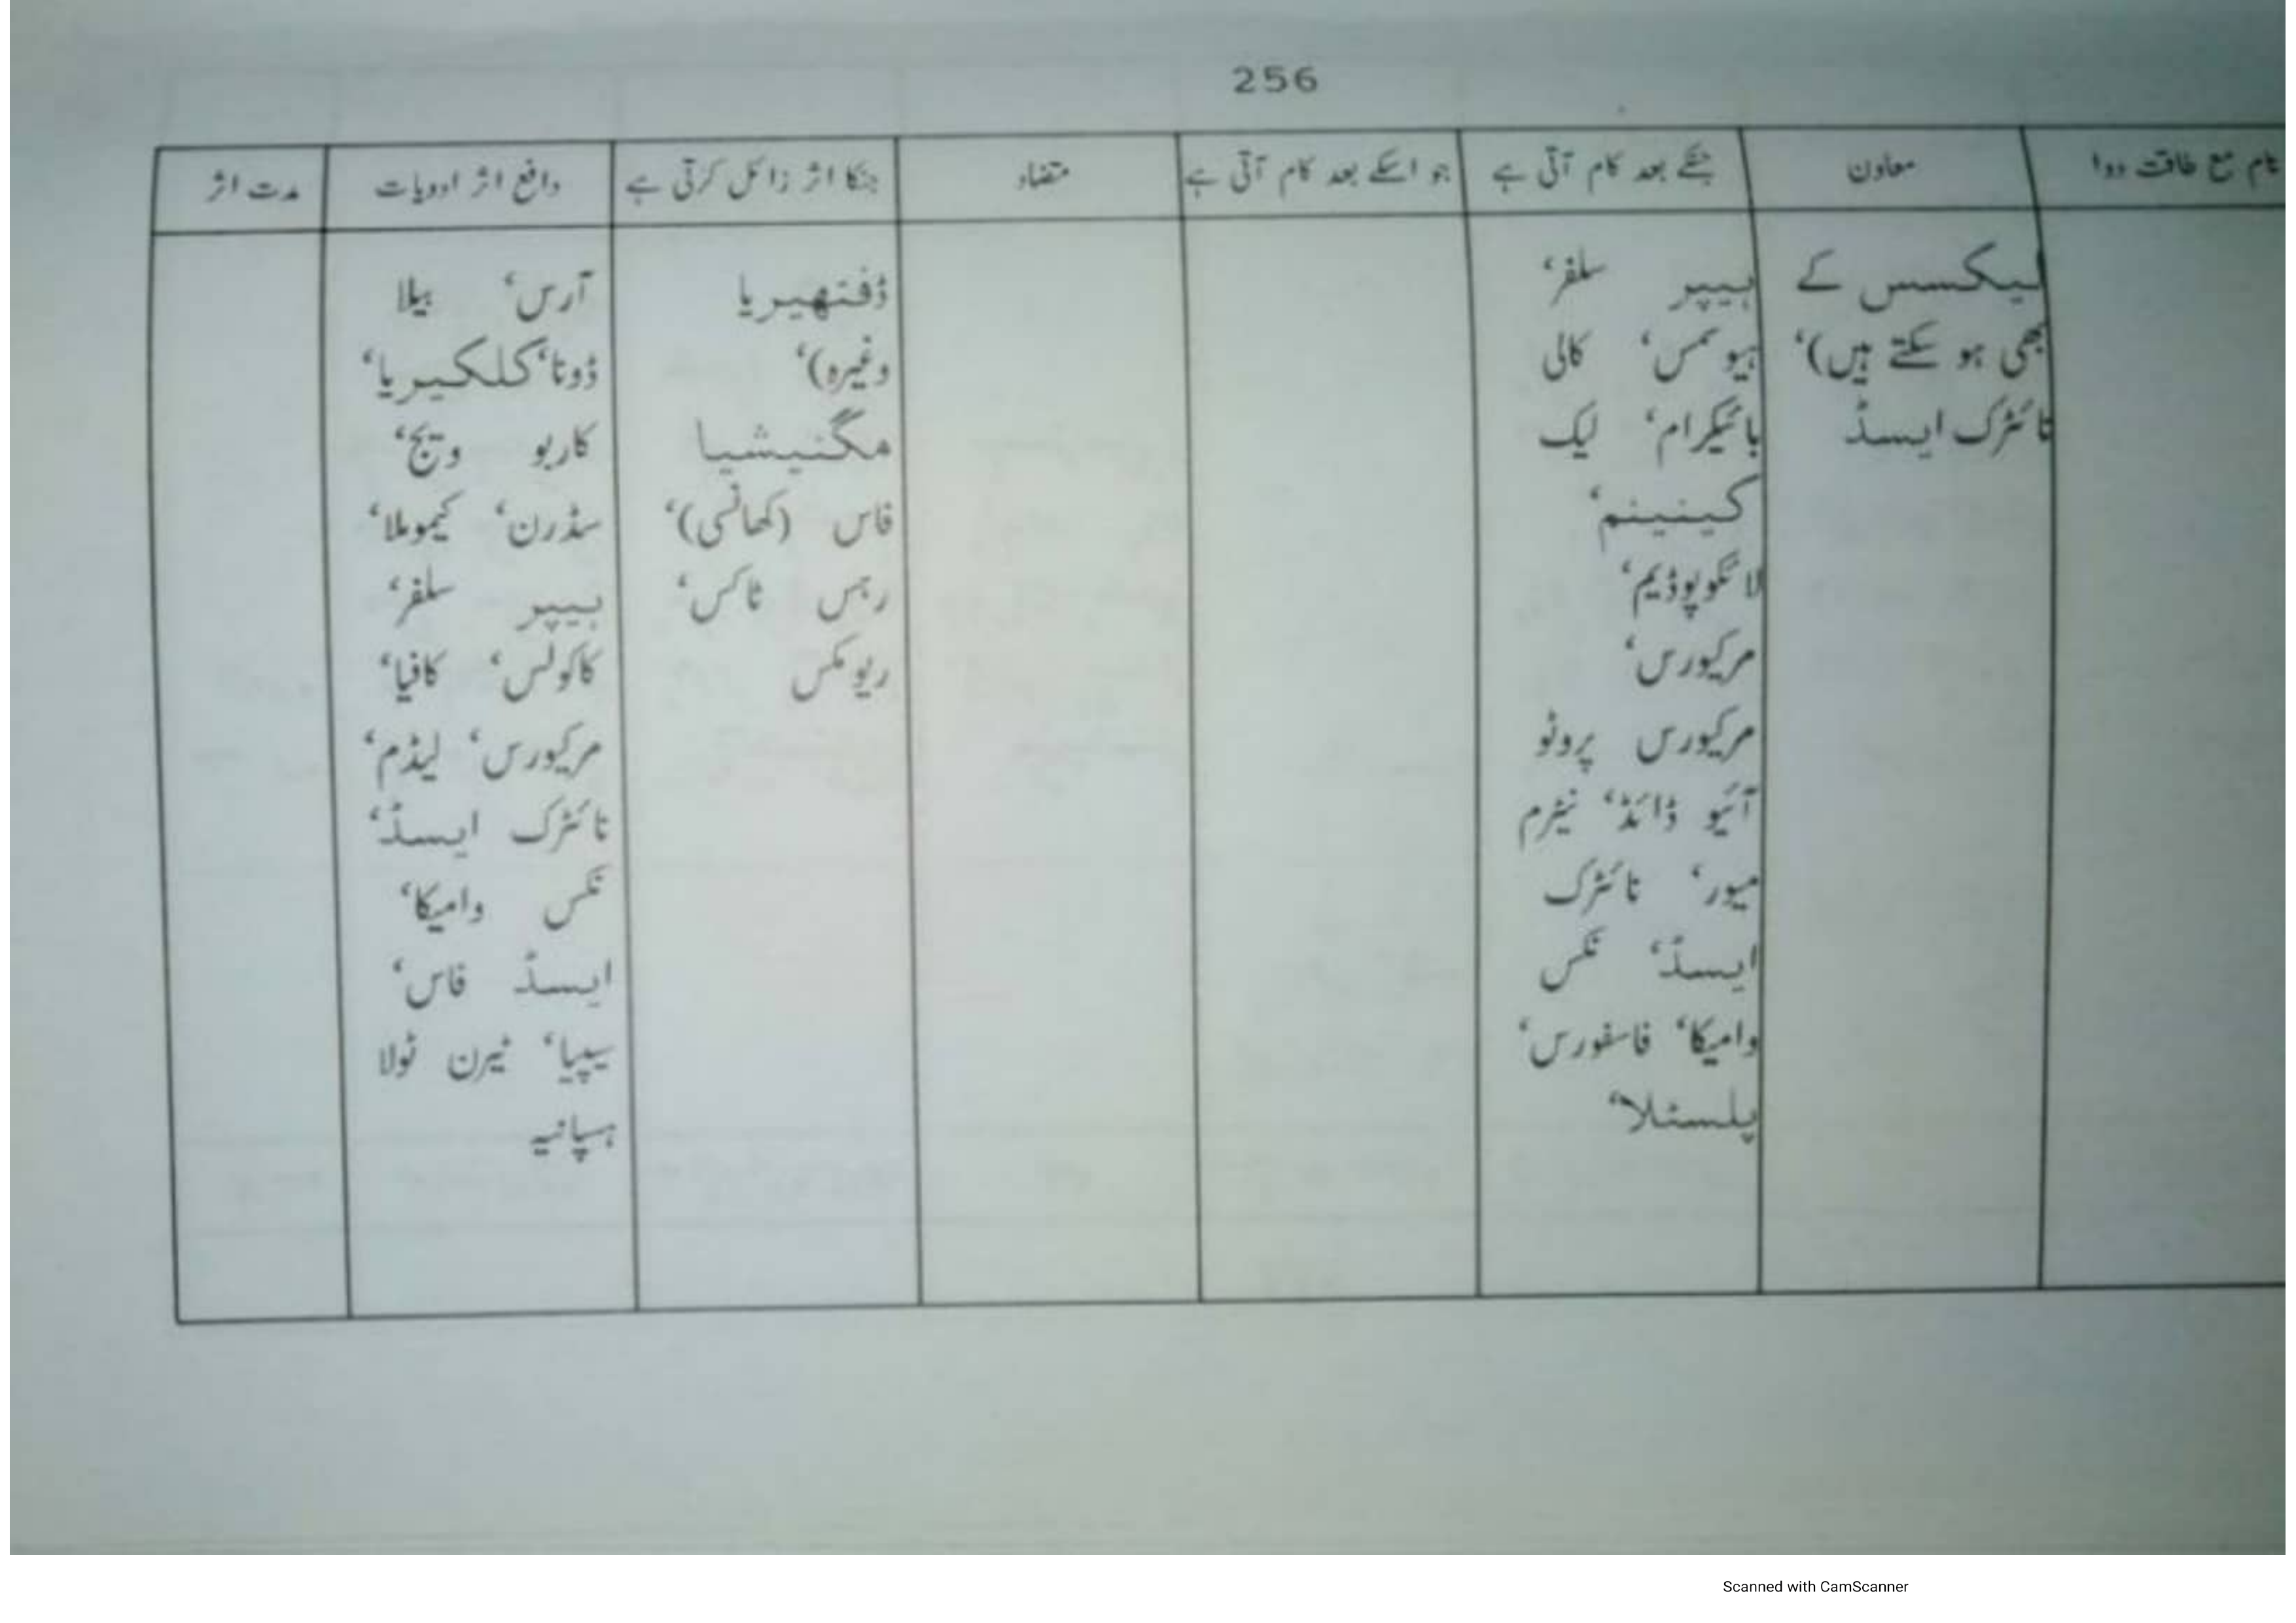 256
نام مع طاقت دوا
معاون
جنکے بعد کام آتی ہے
جو اسکے بعد کام آتی ہے
متضاد
جنکا اثر زائل کرتی ہے
دافع اثر ادویات
مدت اثر
لیکسس کے
بھی ہو سکتے ہیں)،
نائٹرک ایسڈ
ہیپر سلفر،
ہیوسمس، کالی
بائیکرام، لیک
کینینم،
لائکوپوڈیم،
مرکیورس،
مرکیورس پروٹو
آئیو ڈائڈ، نیٹرم
میور، نائٹرک
ایسڈ، نکس
وامیکا، فاسفورس،
پلسٹلا،
ڈفتھیریا
وغیرہ)،
مگنیشیا
فاس (کھانسی)،
رہس ٹاکس،
ریومکس
آرس، بیلا
ڈونا، کلکیریا،
کاربو ویج،
سڈرن، کیمومِلا،
ہیپر سلفر،
کاکولس، کافیا،
مرکیورس، لیڈم،
نائٹرک ایسڈ،
نکس وامیکا،
ایسڈ فاس،
سیپیا، ٹیرن ٹولا
ہسپانیہ
Scanned with CamScanner